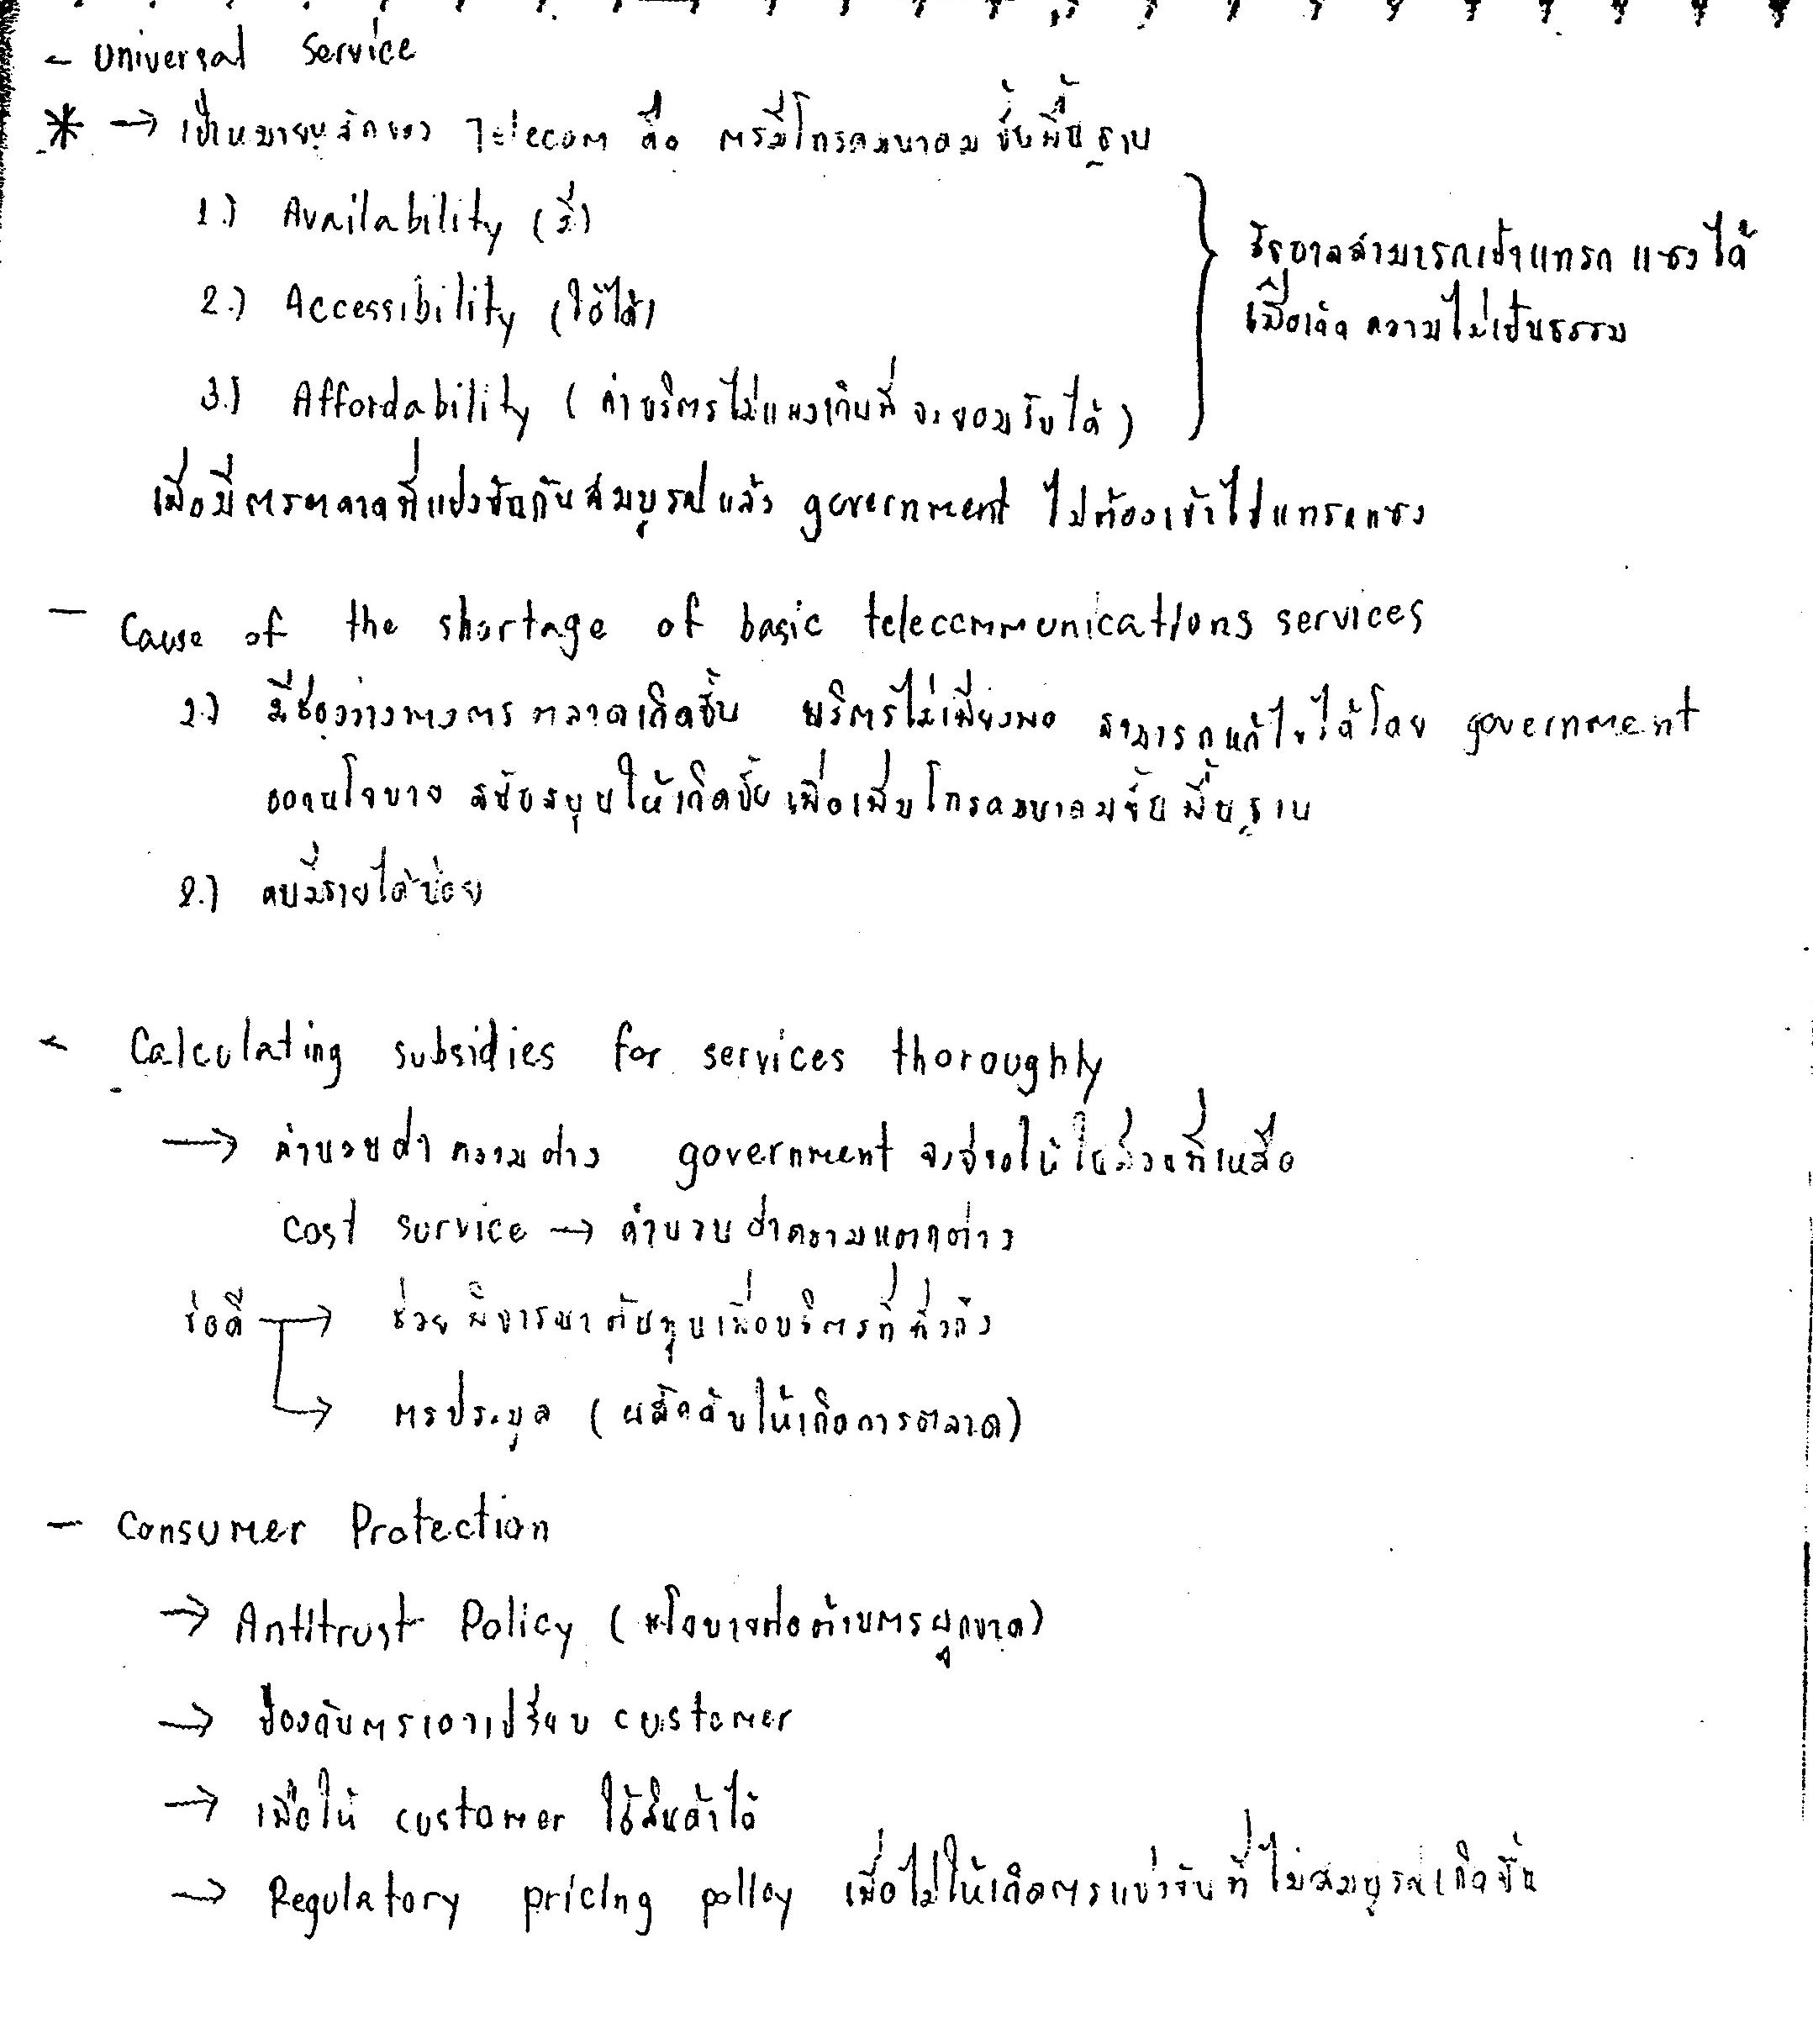 - Universal Service
* → เป้าหมายหลักของ Telecom คือ การมีโทรคมนาคมขั้นพื้นฐาน
1.) Availability (มี)
2.) Accessibility (ใช้ได้)
3.) Affordability (ค่าบริการไม่แพงเกินที่จะยอมรับได้)
รัฐบาลสามารถเข้าแทรกแซงได้
เมื่อเกิดความไม่เป็นธรรม
เมื่อมีการตลาดที่แข่งขันกันสมบูรณ์แล้ว government ไม่ต้องเข้าไปแทรกแซง
- Cause of the shortage of basic telecommunications services
1.) มีช่องว่างทางการตลาดเกิดขึ้น บริการไม่เพียงพอ สามารถแก้ไขได้โดย government
ออกนโยบาย สนับสนุนให้เกิดขึ้น เพื่อเพิ่มโทรคมนาคมขั้นพื้นฐาน
2.) คนมีรายได้น้อย
- Calculating subsidies for services thoroughly
→ คำนวนค่าความต่าง government จะจ่ายให้ในส่วนที่เหลือ
cost service → คำนวนค่าความแตกต่าง
ข้อดี → ช่วยพิจารณาต้นทุนเพื่อบริการที่ทั่วถึง
→ การประมูล (ผลักดันให้เกิดการตลาด)
- Consumer Protection
→ Antitrust Policy (นโยบายต่อต้านการผูกขาด)
→ ป้องกันการเอาเปรียบ customer
→ เพื่อให้ customer ใช้สินค้าได้
→ Regulatory pricing policy เพื่อไม่ให้เกิดการแข่งขันที่ไม่สมบูรณ์เกิดขึ้น